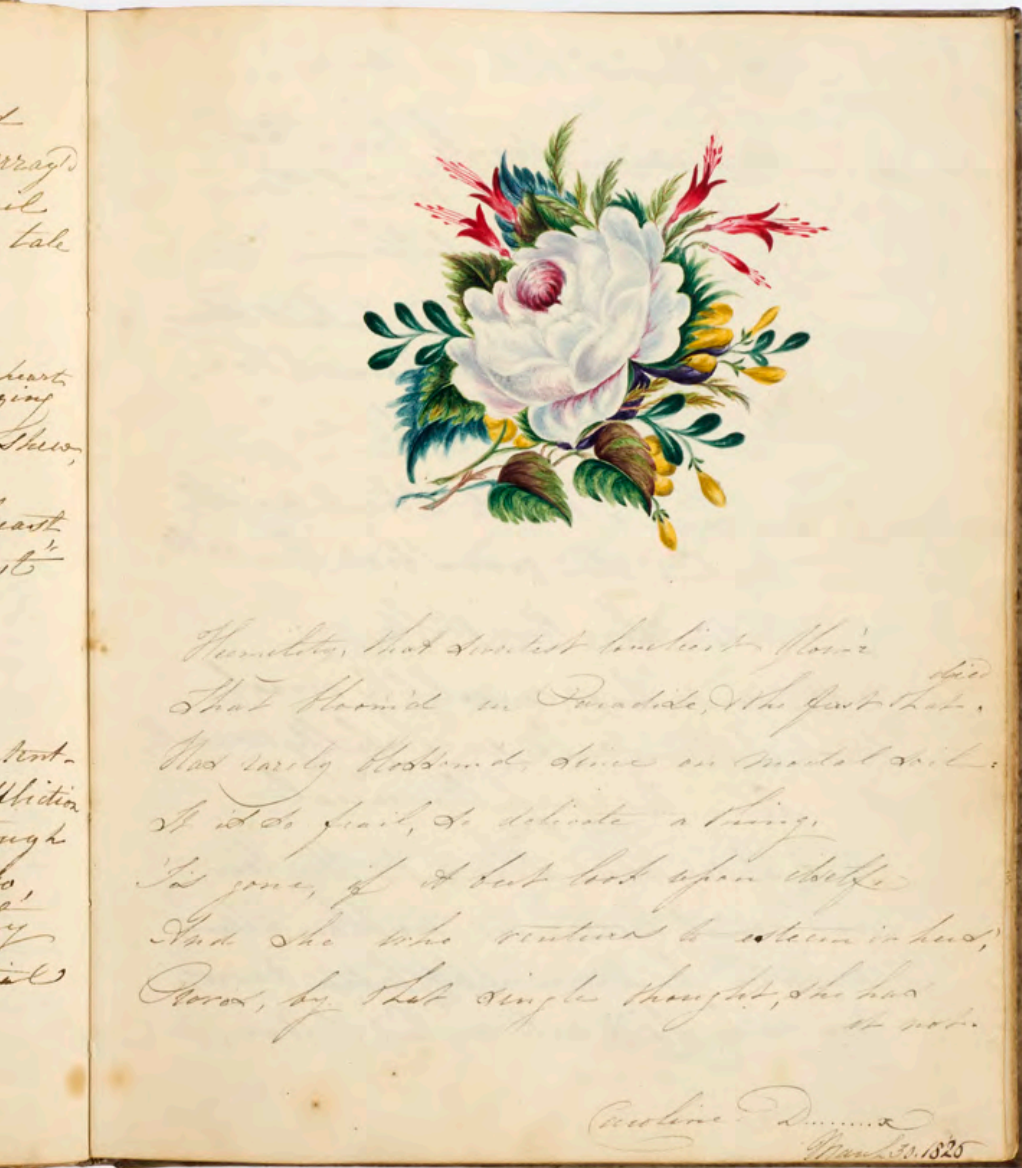 tale
heart
Shew,
Humility, that sweetest loveliest flow'r
died
That bloom'd in Paradise, & the first that.
Has rarely blossom'd, since on mortal soil:
It is so frail, so delicate a thing,
'Tis gone, if it but look upon itself.
And she who ventures to esteem it hers,
Proves, by that single thought, she has
it not.
Caroline D.......x
March 30. 1825